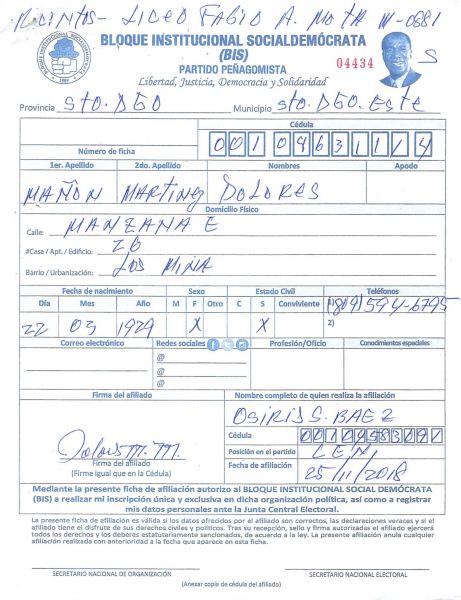 Recinto - LICEO FABIO A. MOTA M-0681
BLOQUE INSTITUCIONAL SOCIALDEMÓCRATA
(BIS)
PARTIDO PEÑAGOMISTA
04434 S
Libertad, Justicia, Democracia y Solidaridad
Provincia STO. DGO Municipio STO. DGO. ESTE
Cédula
Número de ficha
1er. Apellido 2do. Apellido Nombres Apodo
MAÑON MARTINEZ DOLORES
Domicilio Físico
Calle: MANZANA E
#Casa / Apt. / Edificio: 26
Barrio / Urbanización: LOS MINA
Fecha de nacimiento Sexo Estado Civil Teléfonos
Día Mes Año M F Otro C S Conviviente 1) (809) 594-6795
22 03 1929 X X 2)
Correo electrónico Redes sociales Profesión/Oficio Conocimientos especiales
@
@
@
Firma del afiliado Nombre completo de quien realiza la afiliación
OSIRIS S. BAEZ
Cédula
Dolores M. M.
Firma del afiliado
(Firme igual que en la Cédula)
Posición en el partido
Fecha de afiliación 25/11/2018
Mediante la presente ficha de afiliación autorizo al BLOQUE INSTITUCIONAL SOCIAL DEMÓCRATA
(BIS) a realizar mi inscripción única y exclusiva en dicha organización política, así como a registrar
mis datos personales ante la Junta Central Electoral.
La presente ficha de afiliación es válida si los datos ofrecidos por el afiliado son correctos, las declaraciones veraces y si el
afiliado tiene el disfrute de sus derechos civiles y políticos. Tras su recepción, sello y firma autorizadas el afiliado ejercerá
todos los derechos y los deberes estatutariamente sancionados, de acuerdo a la ley. La presente afiliación anula cualquier
afiliación realizada con anterioridad a la fecha que aparece en esta ficha.
SECRETARIO NACIONAL DE ORGANIZACIÓN SECRETARIO NACIONAL ELECTORAL
(Anexar copia de cédula del afiliado)